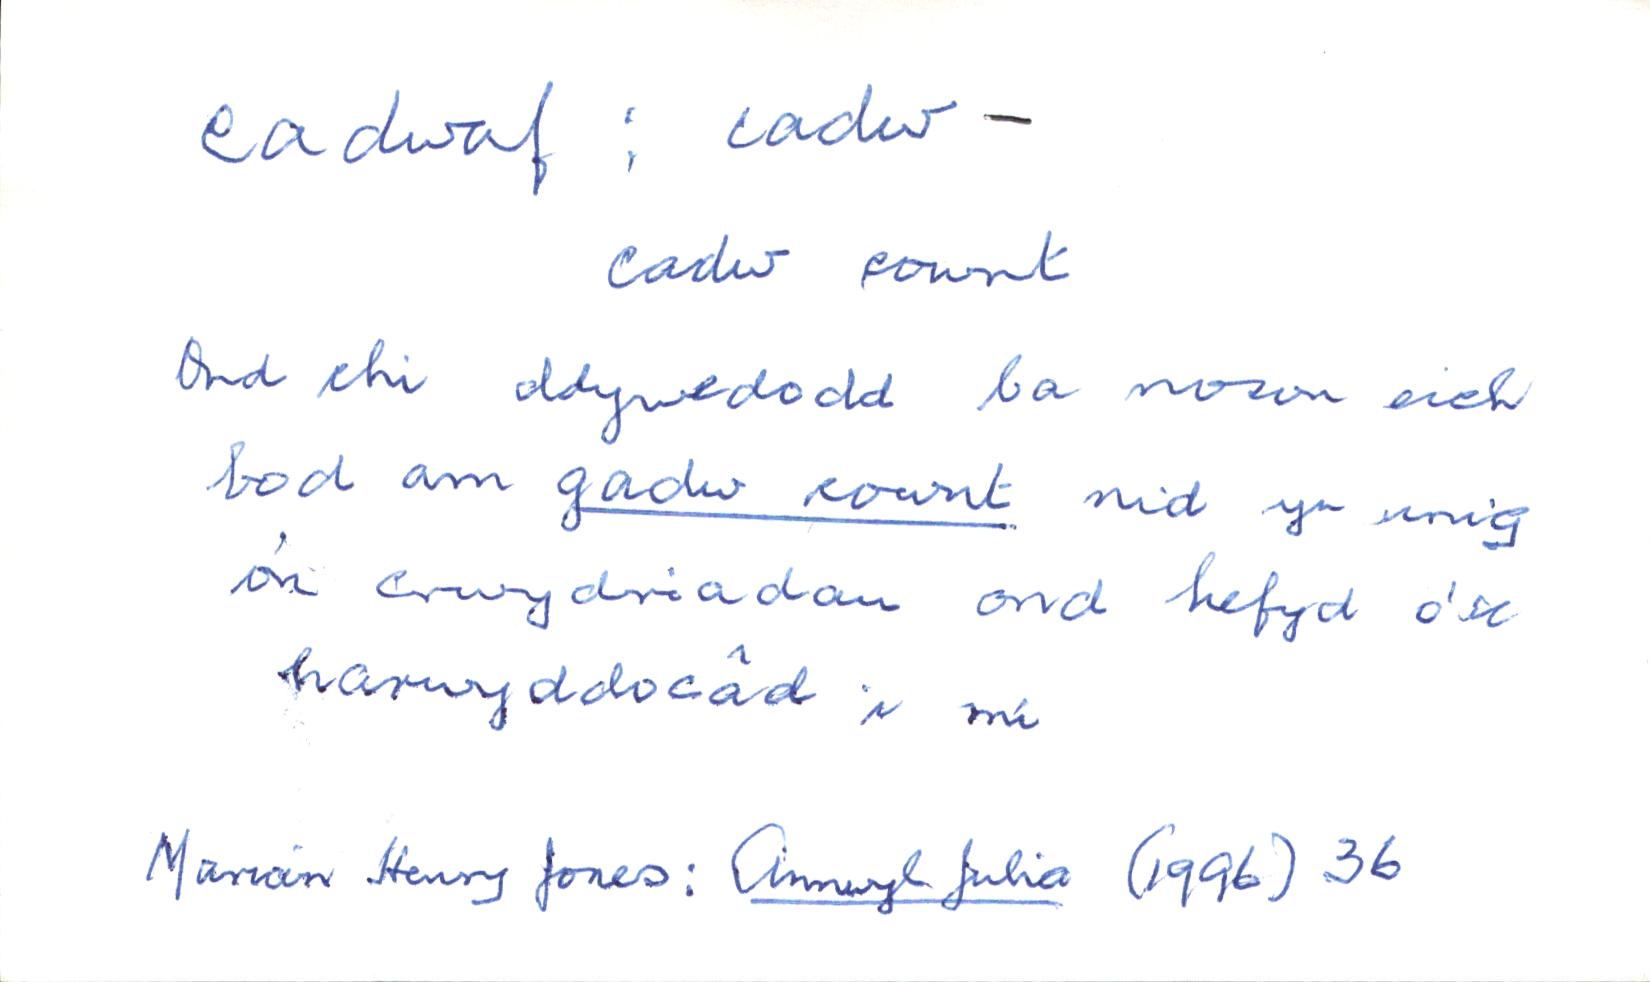 cadwaf : cadw –
cadw cownt
Ond chi ddywedodd ba noson eich
bod am gadw cownt nid yn unig
o'n crwydriadau ond hefyd o'u
harwyddocâd i mi
Marian Henry Jones: Annwyl Julia (1996) 36